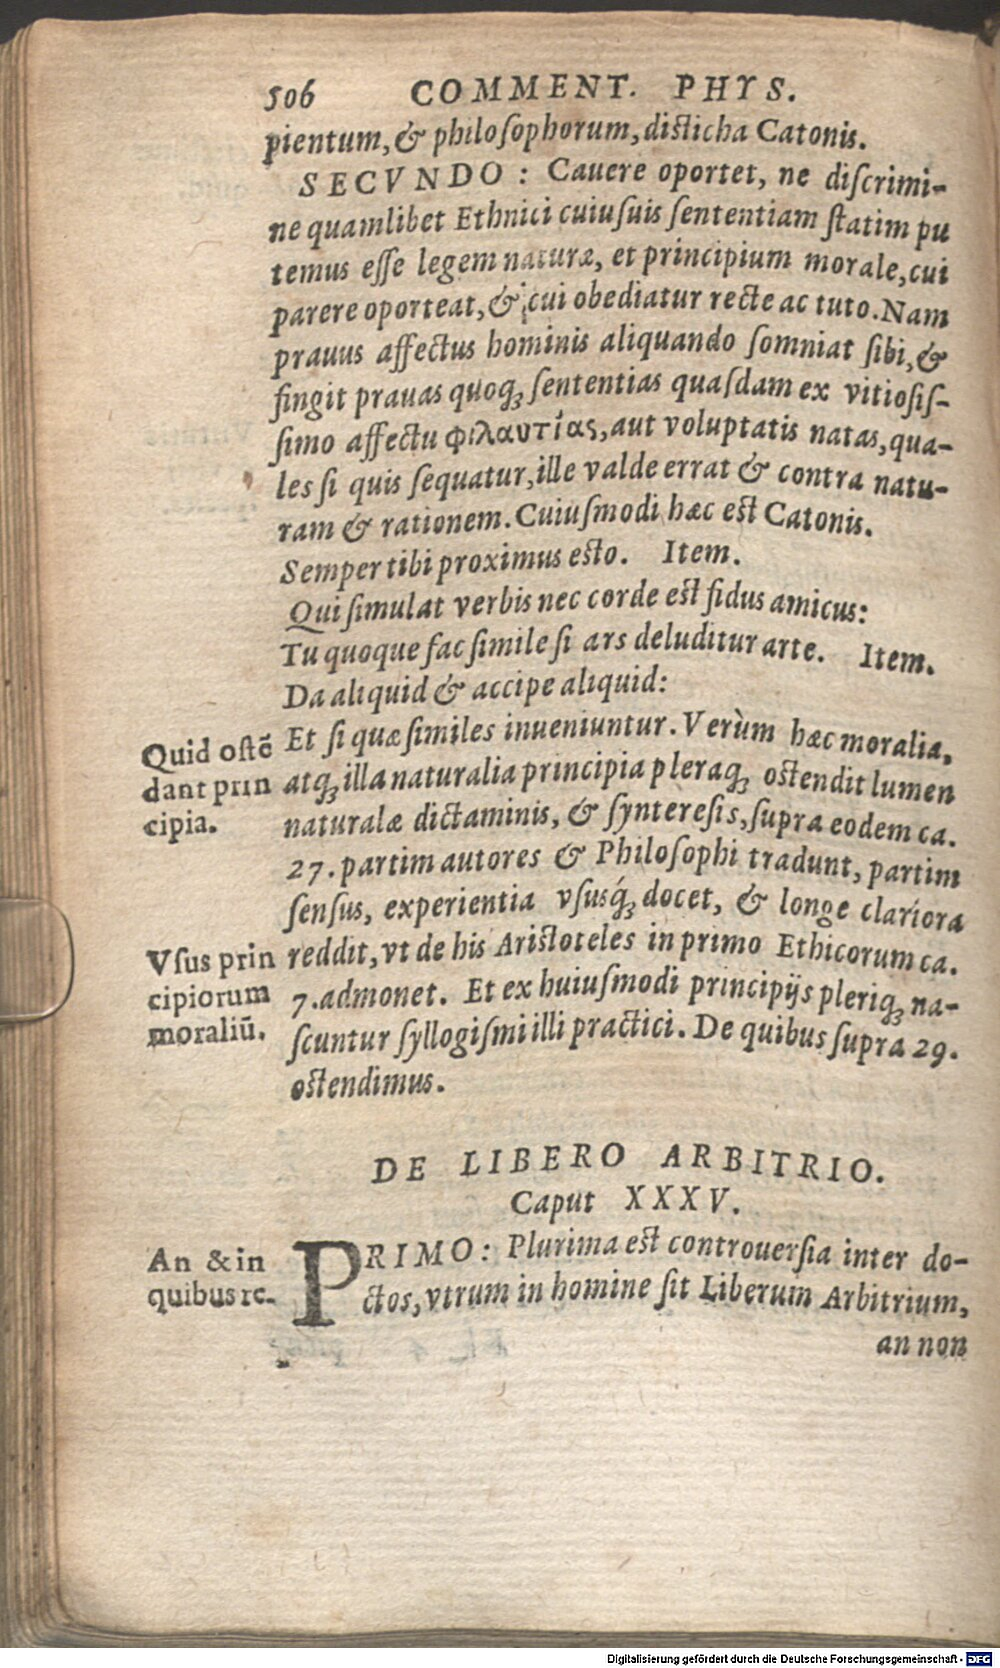 506 COMMENT. PHYS.
pientum, & philoſophorum, diſticha Catonis.
SECVNDO: Cauere oportet, ne diſcrimi-
ne quamlibet Ethnici cuiuſuis ſententiam ſtatim pu
temus eſſe legem naturæ, et principium morale, cui
parere oporteat, & cui obediatur recte ac tuto. Nam
prauus affectus hominis aliquando ſomniat ſibi, &
fingit prauas quoq; ſententias quaſdam ex vitioſiſ-
ſimo affectu φιλαυτίας, aut voluptatis natas, qua-
les ſi quis ſequatur, ille valde errat & contra natu-
ram & rationem. Cuiuſmodi hæc eſt Catonis.
Semper tibi proximus eſto. Item.
Qui ſimulat verbis nec corde eſt fidus amicus:
Tu quoque fac ſimile ſi ars deluditur arte. Item.
Da aliquid & accipe aliquid:
Et ſi quæ ſimiles inueniuntur. Verùm hæc moralia,
atq; illa naturalia principia pleraq; oſtendit lumen
naturalæ dictaminis, & ſyntereſis, ſupra eodem ca.
27. partim autores & Philoſophi tradunt, partim
ſenſus, experientia vſusq́; docet, & longe clariora
reddit, vt de his Ariſtoteles in primo Ethicorum ca.
7. admonet. Et ex huiuſmodi principijs pleriq; na-
ſcuntur ſyllogiſmi illi practici. De quibus ſupra 29.
oſtendimus.
Quid oſtē
dant prin
cipia.
Vſus prin
cipiorum
moraliū.
DE LIBERO ARBITRIO.
Caput XXXV.
An & in
quibus re-
PRIMO: Plurima eſt controuerſia inter do-
ctos, vtrum in homine ſit Liberum Arbitrium,
an non
Digitalisierung gefördert durch die Deutsche Forschungsgemeinschaft - DFG